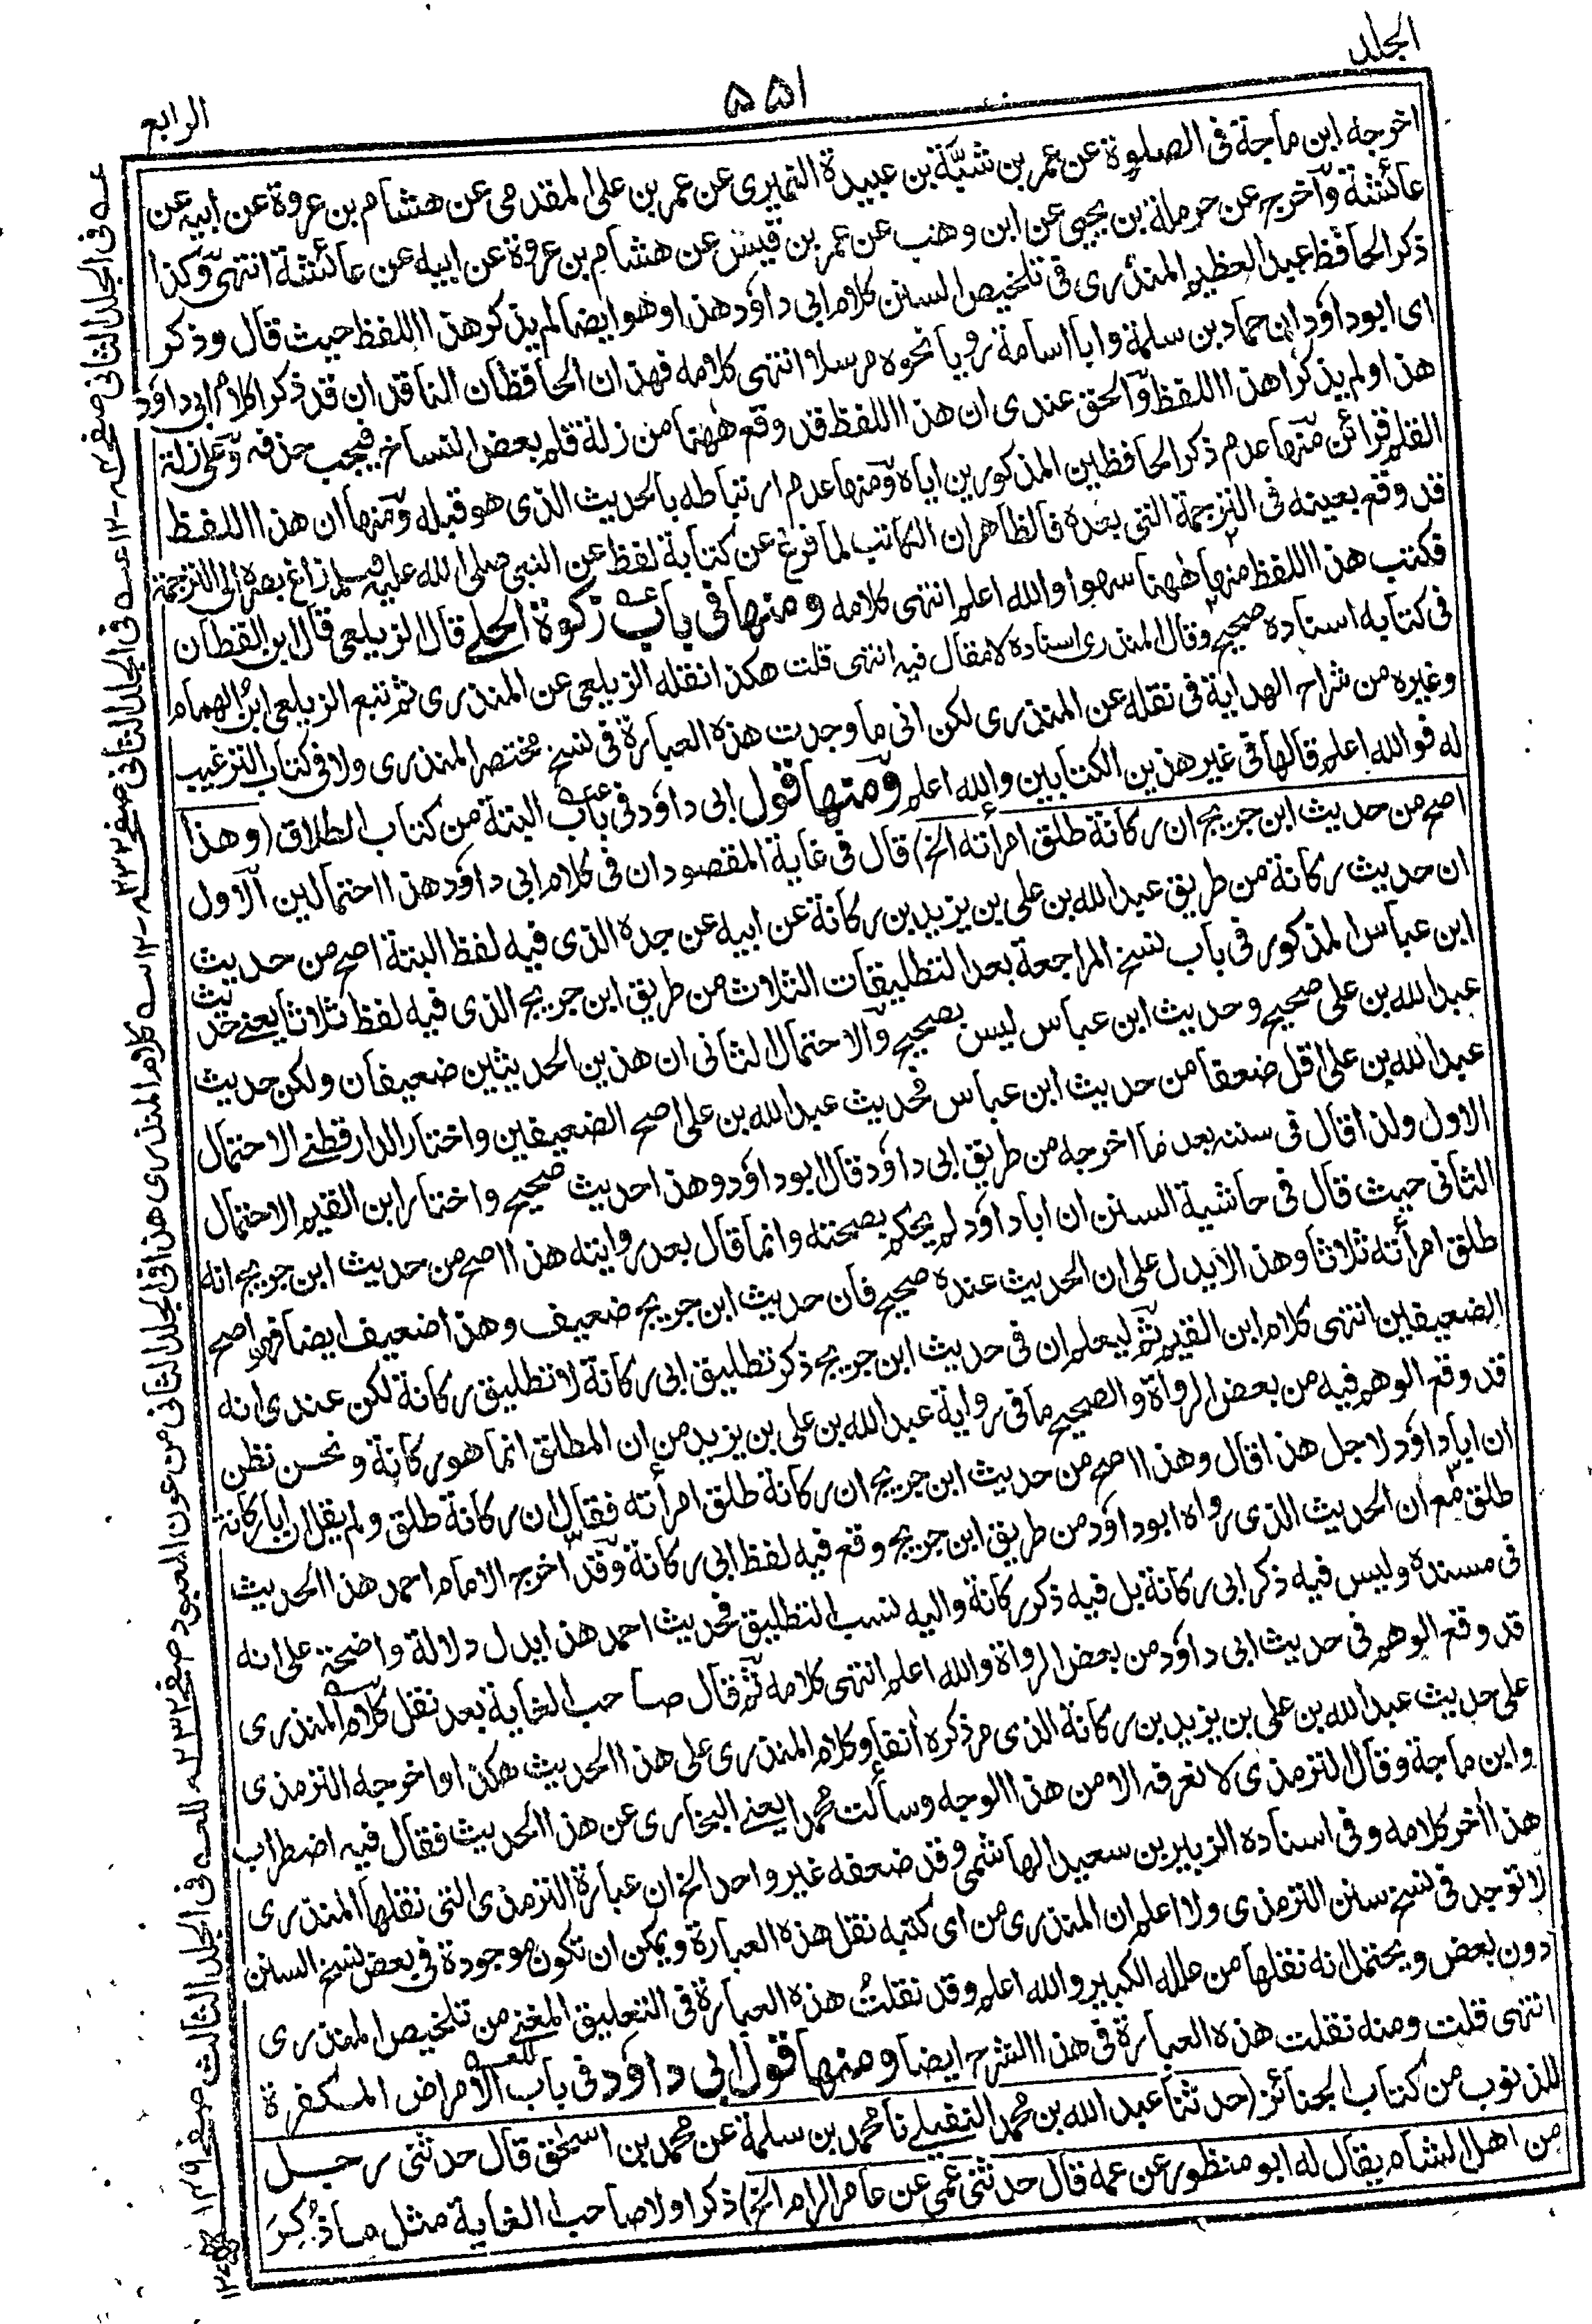 الجلد
۵۵۱
الرابع
اخرجه ابن ماجة فى الصلوة عن عمر بن شبّة بن عبيدة النميرى عن عمر بن على المقدمى عن هشام بن عروة عن ابيه عن
عائشة وآخرجه عن حرملة بن يحيى عن ابن وهب عن عمر بن قيس عن هشام بن عروة عن ابيه عن عائشة انتهى وكذا
ذكر الحافظ عبد العظيم المنذرى فى تلخيص السنن كلام ابى داؤد هذا وهو ايضا لم يذكر هذا اللفظ حيث قال وذكر
اى ابوداؤد ان حماد بن سلمة وابا اسامة رويا نحوه مرسلا انتهى كلامه فهذان الحافظان الناقدان قد ذكرا كلام ابى داؤد
هذا ولم يذكرا هذا اللفظ وآلحق عندى ان هذا اللفظ قد وقع ههنا من زلة قلم بعض النساخ فيجب حذفه وعلى زلة
القلم قرائن منها عدم ذكر الحافظين المذكورين اياه ومنها عدم ارتباطه بالحديث الذى هو قبله ومنها ان هذا اللفظ
قد وقع بعينه فى الترجمة التى بعده فالظاهر ان الكاتب لما فرغ عن كتابة لفظ عن النبى صلى الله عليه وسلم زاغ بصره الى الترجمة
فكتب هذا اللفظ منها ههنا سهوا والله اعلم انتهى كلامه ومنها فى باب زكوة الحلے قال الزيلعى قال ابن القطان
فى كتابه اسناده صحيح وقال المنذرى اسناده لا مقال فيه انتهى قلت هكذا نقله الزيلعى عن المنذرى ثم تبع الزيلعى ابن الهمام
وغيره من شراح الهداية فى نقله عن المنذرى لكن انى ما وجدت هذه العبارة فى نسخ مختصر المنذرى ولا فى كتاب الترغيب
له فوالله اعلم قالها فى غير هذين الكتابين والله اعلم ومنها قول ابى داؤد فى باب البتة من كتاب الطلاق (وهذا
اصح من حديث ابن جريج ان ركانة طلق امرأته الخ) قال فى غاية المقصود ان فى كلام ابى داؤد هذا احتمالين الاول
ان حديث ركانة من طريق عبد الله بن على بن يزيد بن ركانة عن ابيه عن جده الذى فيه لفظ البتة اصح من حديث
ابن عباس المذكور فى باب نسخ المراجعة بعد التطليقات الثلاث من طريق ابن جريج الذى فيه لفظ ثلاثا يعنے حديث
عبد الله بن على صحيح وحديث ابن عباس ليس بصحيح وآلاحتمال الثانى ان هذين الحديثين ضعيفان ولكن حديث
عبد الله بن على اقل ضعفا من حديث ابن عباس فحديث عبد الله بن على اصح الضعيفين واختار الدارقطنے الاحتمال
الاول ولذا قال فى سننه بعد ما اخرجه من طريق ابى داؤد قال ابوداؤد وهذا حديث صحيح واختار ابن القيم الاحتمال
الثانى حيث قال فى حاشية السنن ان اباداؤد لم يحكم بصحته وانما قال بعد روايته هذا اصح من حديث ابن جريج انه
طلق امرأته ثلاثا وهذا لا يدل على ان الحديث عنده صحيح فان حديث ابن جريج ضعيف وهذا ضعيف ايضا فهو اصح
الضعيفين انتهى كلام ابن القيم ثم ليعلم ان فى حديث ابن جريج ذكر تطليق ابى ركانة لا تطليق ركانة لكن عندى انه
قد وقع الوهم فيه من بعض الرواة والصحيح ما فى رواية عبد الله بن على بن يزيد من ان المطلق انما هو ركانة ونحسن نظن
ان اباداؤد لاجل هذا قال وهذا اصح من حديث ابن جريج ان ركانة طلق امرأته فقال ان ركانة طلق ولم يقل ان ابا ركانة
طلق مع ان الحديث الذى رواه ابوداؤد من طريق ابن جريج وقع فيه لفظ ابى ركانة وقد آخرجه الامام احمد هذا الحديث
فى مسنده وليس فيه ذكر ابى ركانة بل فيه ذكر ركانة واليه نسب التطليق فحديث احمد هذا يدل دلالة واضحة على انه
قد وقع الوهم فى حديث ابى داؤد من بعض الرواة والله اعلم انتهى كلامه ثم قال صاحب الغاية بعد نقل كلام المنذرى
على حديث عبد الله بن على بن يزيد بن ركانة الذى مر ذكره آنفا وكلام المنذرى على هذا الحديث هكذا واخرجه الترمذى
وابن ماجة وقال الترمذى لا نعرفه الا من هذا الوجه وسألت محمدا يعنے البخارى عن هذا الحديث فقال فيه اضطراب
هذا آخر كلامه وفى اسناده الزبير بن سعيد الهاشمى وقد ضعفه غير واحد الخ ان عبارة الترمذى التى نقلها المنذرى
لا توجد فى نسخ سنن الترمذى ولا اعلم ان المنذرى من اى كتبه نقل هذه العبارة ويمكن ان تكون موجودة فى بعض نسخ السنن
دون بعض ويحتمل انه نقلها من علله الكبير والله اعلم وقد نقلتُ هذه العبارة فى التعليق المغنے من تلخيص المنذرى
انتهى قلت ومنه نقلت هذه العبارة فى هذا الشرح ايضا ومنها قول ابى داؤد فى باب الأمراض المكفرة
للذنوب من كتاب الجنائز (حدثنا عبد الله بن محمد النفيلے نا محمد بن سلمة عن محمد بن اسحٰق قال حدثنى رجل
من اهل الشام يقال له ابو منظور عن عمه قال حدثنى عمى عن عامر الرام الخ) ذكر اولا صاحب الغاية مثل ما ذُكِرَ
عــه فى الجلد الثانى صفحه ۱۲- عــه فى الجلد الثانى صفحه ۲۳۲ ۱۲- ســه كلام المنذرى هذا فى الجلد الثانى من عون المعبود صفحه ۲۳۲ للعــه فى الجلد الثالث صفحه ۱۴۹ ۱۲